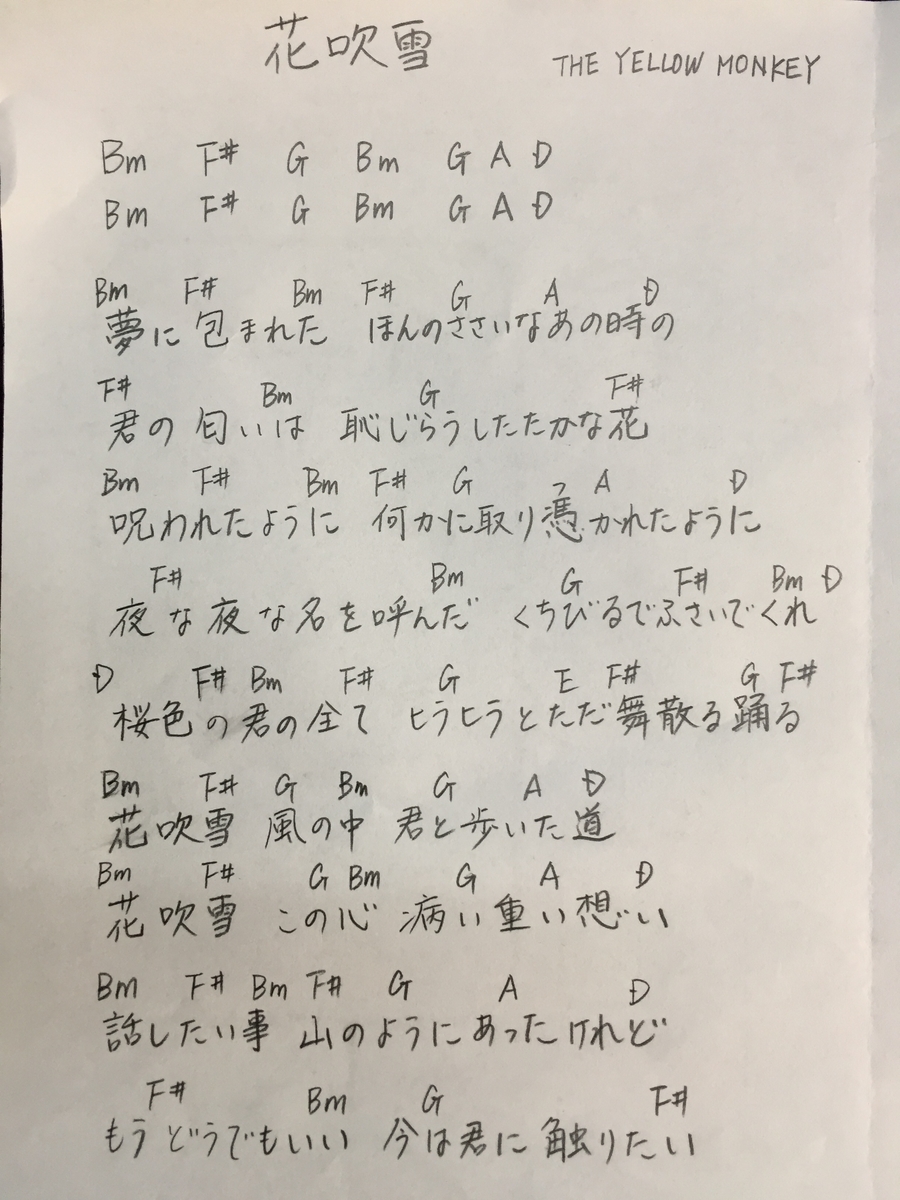 花吹雪 THE YELLOW MONKEY
Bm F# G Bm G A D
Bm F# G Bm G A D
Bm F# Bm F# G A D
夢に包まれた ほんのささいなあの時の
F# Bm G F#
君の匂いは 恥じらうしたたかな花
Bm F# Bm F# G つ A D
呪われたように 何かに取り憑かれたように
F# Bm G F# Bm D
夜な夜な名を呼んだ くちびるでふさいでくれ
D F# Bm F# G E F# G F#
桜色の君の全て ヒラヒラとただ舞散る踊る
Bm F# G Bm G A D
花吹雪 風の中 君と歩いた道
Bm F# G Bm G A D
花吹雪 この心 病い重い想い
Bm F# Bm F# G A D
話したい事 山のようにあったけれど
F# Bm G F#
もうどうでもいい 今は君に触りたい